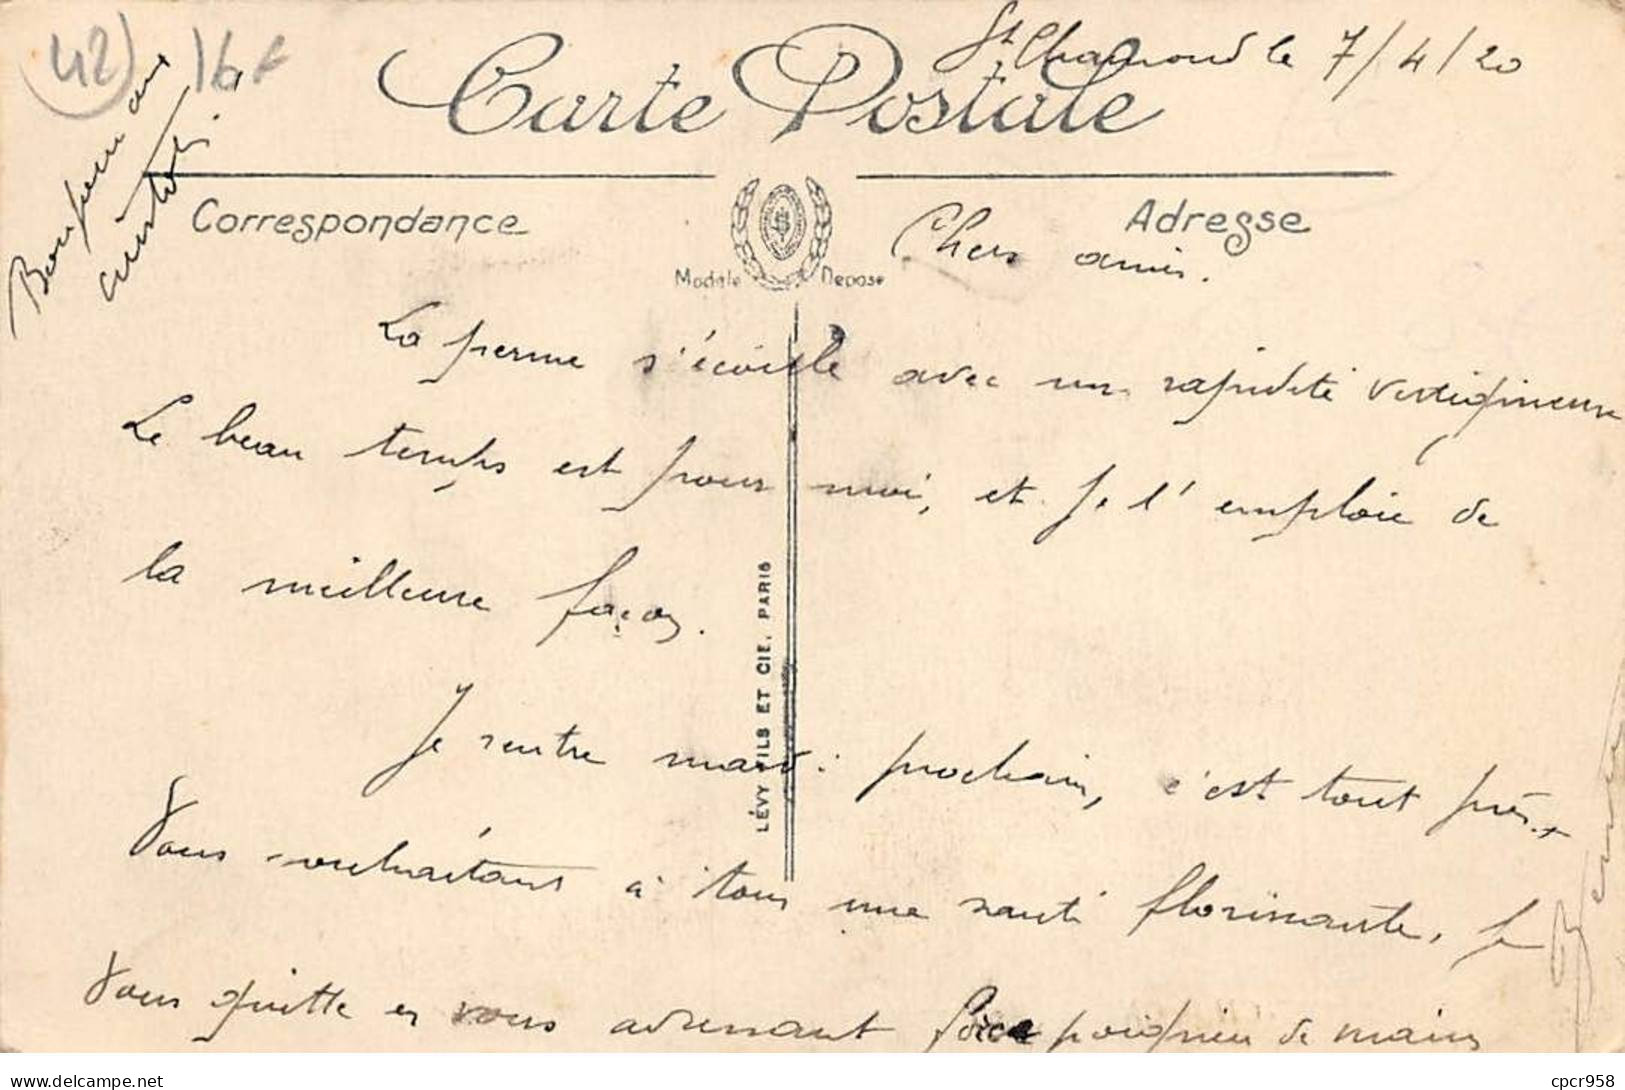 42
16 F
St Chamond le 7/4/20
Carte Postale
Bonjour aux
Correspondance
Adresse
Modèle Déposé
Chers amis.
La perme s'écoule avec un rapidité vertigineuse
Le beau temps est pour moi, et je l'emploie de
la meilleure façon.
Je rentre mardi prochain, c'est tout près.
Vous souhaitant à tous une santé florissante, je
vous quitte en vous adressant poignées de mains
LÉVY FILS ET CIE, PARIS
cpcr958